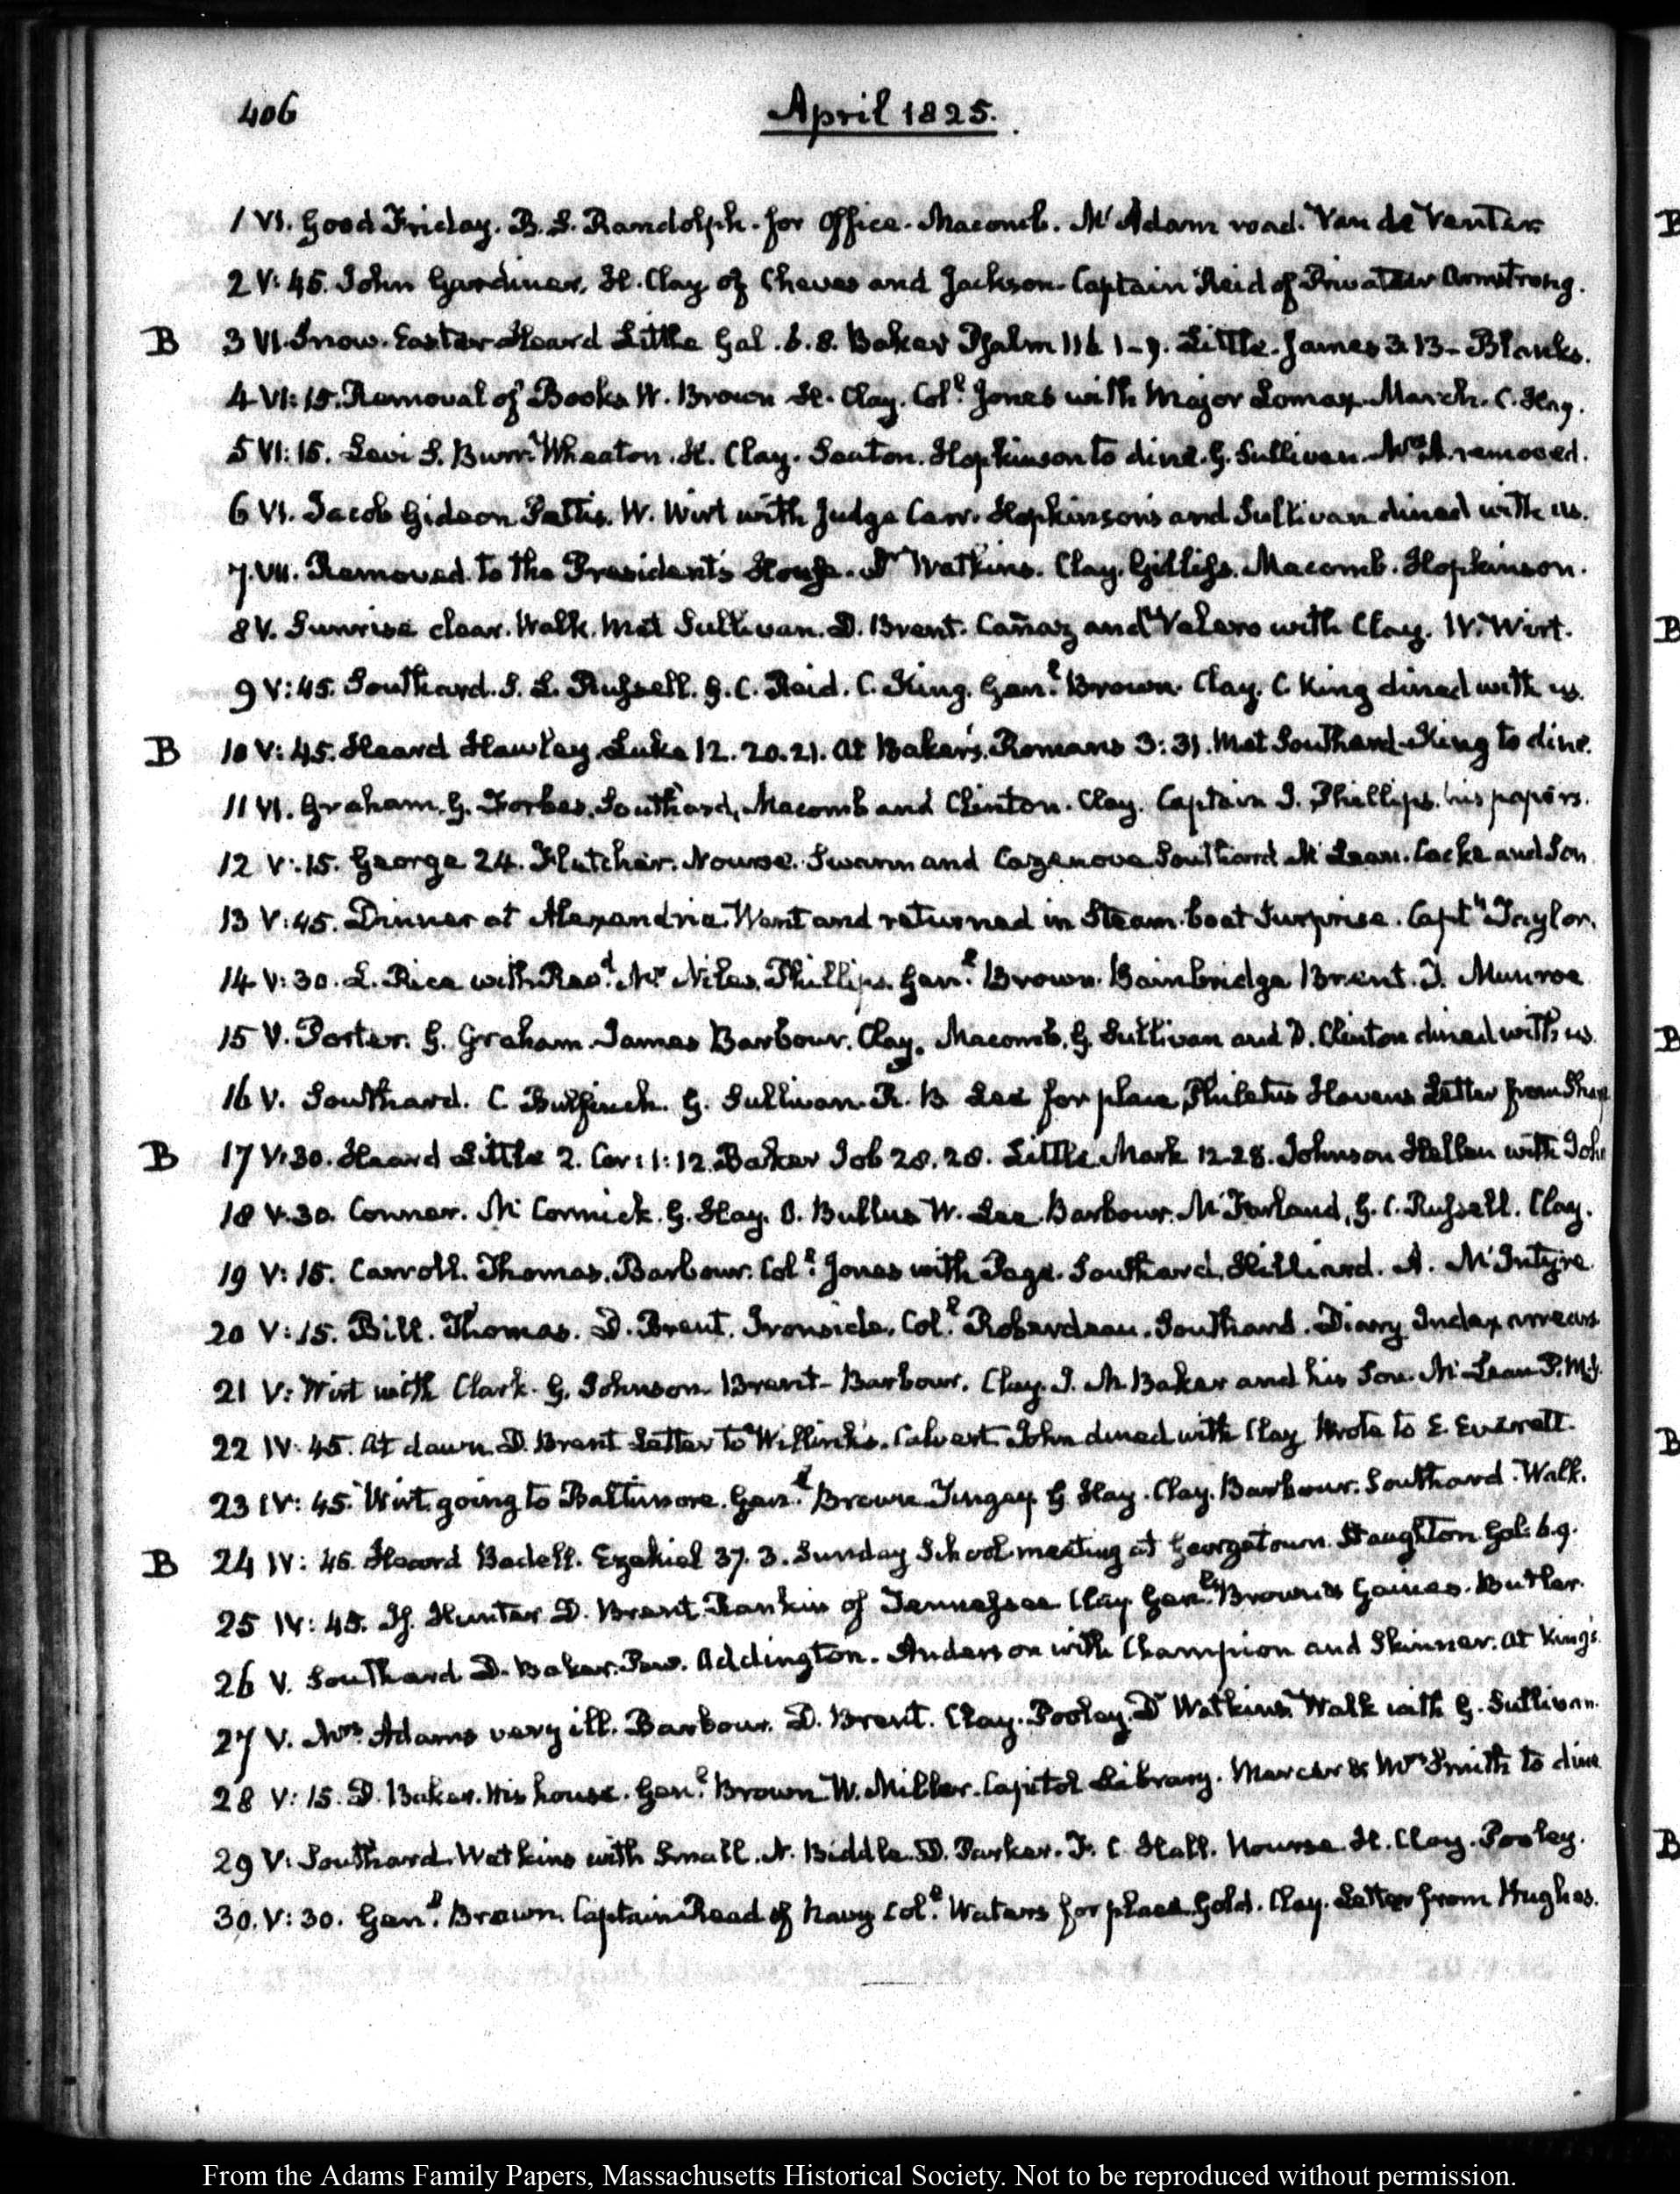 406
April 1825.
1 VI. Good Friday. B. S. Randolph. for Office. Macomb. McAdam road. Van de Venter
2 V:45. John Gardiner. H. Clay of Cheves and Jackson. Captain Reid of Privateer Armstrong.
B 3 VI. Snow. Easter Heard Little Gal. 6. 8. Baker Psalm 116 1-9. Little. James 3.13 - Blanks.
4 VI:15. Removal of Books W. Brown H. Clay. Coll. Jones with Major Lomax. March. C. Hay.
5 VI:15. Levi S. Burr. Wheaton. H. Clay. Seaton. Hopkinson to dine. G. Sullivan. Mrs. A. removed.
6 VI. Jacob Gideon. Pettis. W. Wirt with Judge Carr. Hopkinsons and Sullivan dined with us.
7. VII. Removed to the President's House. Dr Watkins. Clay. Gilliss. Macomb. Hopkinson.
8 V. Sunrise clear. Walk. Met Sullivan. D. Brent. Cañaz and Valero with Clay. W. Wirt.
9 V:45. Southard. J. L. Russell. G. C. Reid. C. King. Genl. Brown. Clay. C King dined with us.
B 10 V:45. Heard Hawley. Luke 12. 20. 21. At Baker's. Romans 3:31. Met Southard. King to dine.
11 VI. Graham. G. Forbes. Southard, Macomb and Clinton. Clay. Captain I. Phillips. his papers.
12 V:15. George 24. Fletcher. Nourse. Swann and Cazenove Southard McLean. Locke and Son
13 V:45. Dinner at Alexandria. Went and returned in Steam-boat Surprise. Captn. Taylor.
14 V:30. L. Rice with Revd. Mr Niles. Phillips. Genl. Brown. Bainbridge Brent. J. Munroe
15 V. Porter. G. Graham. James Barbour. Clay. Macomb. G. Sullivan and D. Clinton dined with us.
16 V. Southard. C. Bulfinch. G. Sullivan. R. B Lee for place Philetus Havens Letter from
B 17 V:30. Heard Little 2. Cor: 1:12. Baker Job 28. 28. Little. Mark 12.28. Johnson Hellen with John
18 V:30. Conner. McCormick. G. Hay. O. Bullus W. Lee Barbour. McFarland, G. C. Russell. Clay.
19 V:15. Carroll. Thomas. Barbour. Coll. Jones with Page. Southard. Hilliard. A. McIntyre
20 V:15. Bill. Thomas. D. Brent. Ironside. Coll. Roberdeau. Southard. Diary Index arrears
21 V: Wirt with Clark. G. Johnson. Brent - Barbour. Clay. J. M. Baker and his Son. McLean P.M.G.
22 IV:45. At dawn. D. Brent Letter to Willink's. Calvert. John dined with Clay Wrote to E. Everett.
23 IV:45. Wirt. going to Baltimore. Genl. Brown Tingey G Hay. Clay. Barbour. Southard. Walk.
B 24 IV:45. Heard Bedell. Ezekiel 37. 3. Sunday School meeting at Georgetown. Staughton Gal: 6.9.
25 IV:45. Hunter D. Brent. Rankin of Tennessee Clay Genls. Brown & Gaines. Butler.
26 V. Southard D. Baker. Addington. Anderson with Champion and Skinner. At King's.
27 V. Mrs. Adams very ill. Barbour. D. Brent. Clay. Pooley. Dr Watkins. Walk with G. Sullivan.
28 V:15. D. Baker. His house. Genl. Brown W. Miller. Capitol Library. Mercer & Mrs Smith to dine
29 V: Southard. Watkins with Small. N. Biddle. D. Parker. F. C. Hall. Nourse. H. Clay. Pooley.
30. V:30. Genl. Brown. Captain Read of Navy Coll. Waters for place. Gold. Clay. Letter from Hughes.
B
B
B
B
B
From the Adams Family Papers, Massachusetts Historical Society. Not to be reproduced without permission.